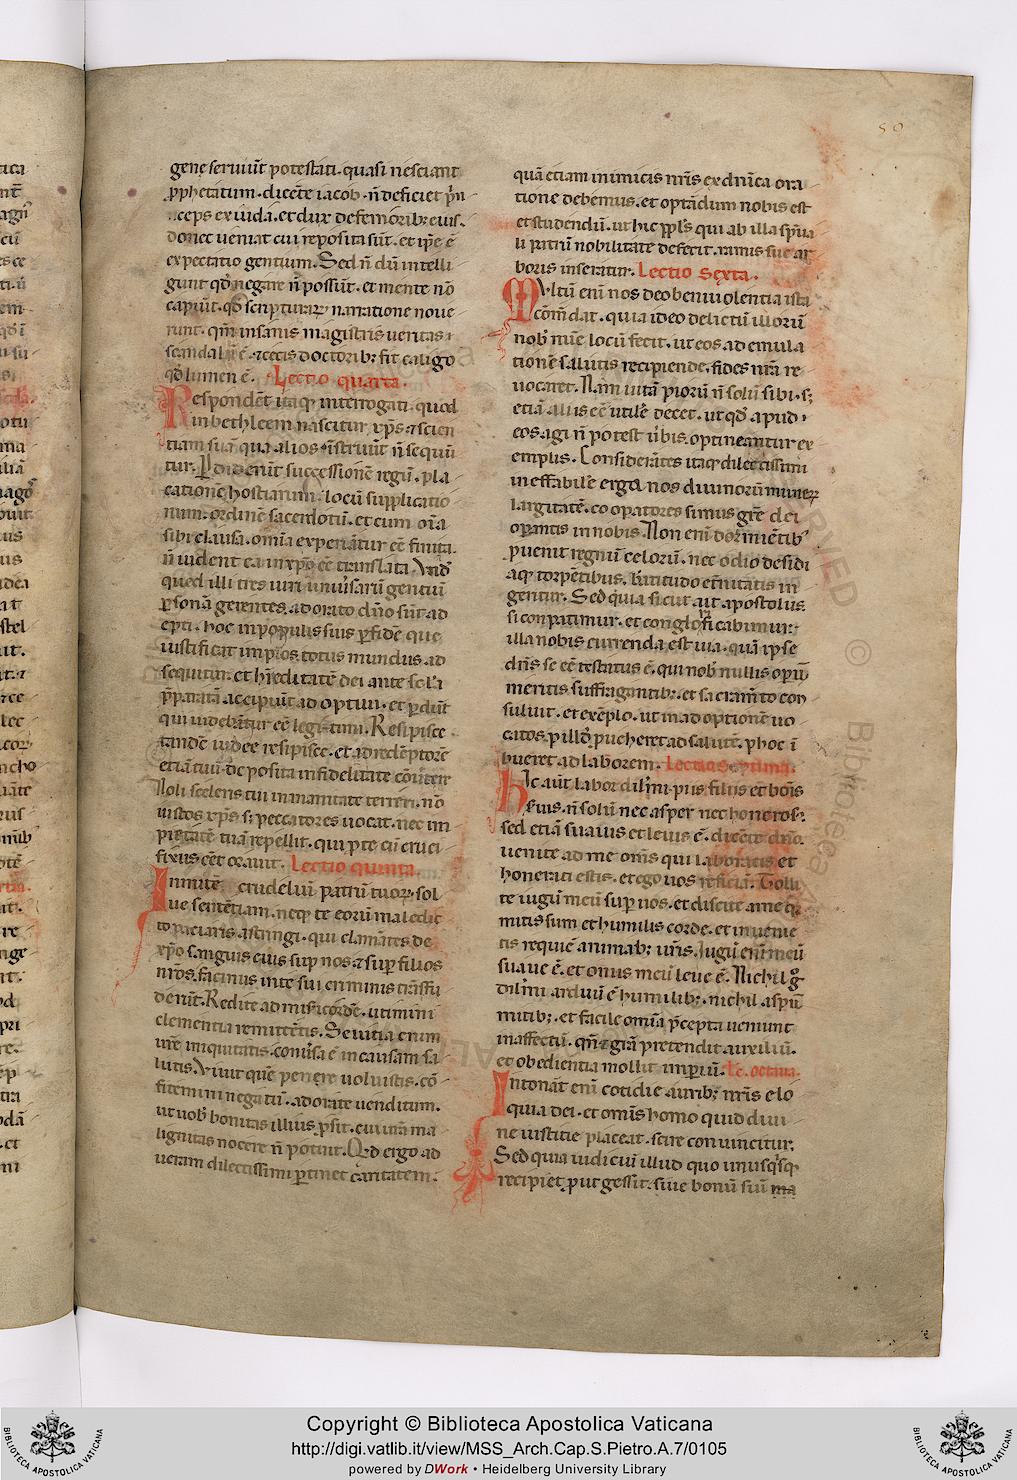 50
gene seruiūt potestati. quasi nesciant
p̄phetatum. dicēte iacob. n̄ deficiet p̄n
ceps ex iuda. et dux de femorib; eius.
donec ueniat cui reposita sūt. et ip̄e ē
expectatio gentium. Sed n̄ dū intelli
gunt qđ negare n̄ possūt. et mente nō
capiūt. qđ scripturarꝝ narratione noue
runt. qm̄ insanis magistris ueritas
scandalū ē. ⁊ cecis doctorib; fit caligo
qđ lumen ē. Lectio quarta.
Respondēt itaq; interrogati. quod
in bethleem nascitur xp̄s. ⁊ scien
tiam suā qua alios īstruūt n̄ sequū
tur. Pdiderūt successionē regū. pla
cationē hostiarum. locū supplicatio
num. ordinē sacerdotū. et cum om̄a
sibi clausa. om̄ia experiātur eē finita.
n̄ uident ea in xp̄o eē translata. Vnđ
quod illi tres uiri uniu'sarū gentiū
ꝑsonā gerentes. adorato dn̄o sūt ad
epti. hoc in populis suis ꝑ fidē que
iustificat impios. totus mundus ad
sequitur. et h'editatē dei ante sc̄la
p̄paratā accipiūt adoptiui. et ꝑdūt
qui uidebātur eē legitimi. Resipisce
tandē iudee resipisce. et ad redēptorē
etiā tuū deposita infidelitate cōuertere
Noli sceleris tui inmanitate terreri. nō
iustos xp̄s s; peccatores uocat. nec im
pietatē tuā repellit. qui p te cū cruci
fixus eēt orauit. Lectio quinta.
Inmitē crudeliū patrū tuorꝝ sol
ue sentētiam. neq; te eorū maledic
to paciaris astringi. qui clamātes de
xp̄o sanguis eius sup nos. ⁊ sup filios
nr̄os. facinus in te sui criminis trāsfu
derūt. Redite ad mis'icordē. utimini
clementia remittētis. Seuitia enim
ur̄e iniquitatis. conu'sa ē in causam sa
lutis. Viuit quē perire uoluistis. cō
fitemini negatū. adorate uenditum.
ut uob' bonitas illius ꝓsit. cui ur̄a ma
lignitas nocere n̄ potuit. Qđ ergo ad
ueram dilectissimi ꝑtinet caritatem.
quā etiam inimicis nr̄is ex dn̄ica ora
tione debemus. et optādum nobis est
et studendū. ut hic ppl's qui ab illa sp̄ua
li patrū nobilitate defecit. ramis sue ar
boris inseratur. Lectio Sexta.
Multū enī nos deo beniuolentia ista
cōm̄dat. quia ideo delictū illorū
nob' mīe locū fecit. ut eos ad emula
tionē salutis recipiende. fides nr̄a re
uocaret. Nam uitā piorū n̄ solū sibi. s;
etiā aliis eē utilē decet. ut qđ apud
eos agi n̄ potest u'bis. optineantur ex
emplis. Considerātes itaq; dilectissimi
ineffabilē erga nos diuinorū munerꝝ
largitatē. cooperatores simus gr̄e dei
operantis in nobis. Non enī dormiētib'
ꝓuenit regnū celorū. nec odio desidi
aq; torpētibus. btitudo et'nitatis in
geritur. Sed quia sicut ait apostolus.
si conpatimur. et conglorificabimur.
illa nobis currenda est uia. quā ipse
dn̄s se eē testatus ē. qui nob' nullis operū
meritis suffragantib;. et sacram̄to con
suluit. et exēplo. ut in adoptionē uo
catos. p illđ pueheret ad salutē. p hoc ī
bueret ad laborem. Lectio Septima.
Hic aūt labor dil'mi. piis filiis et bōis
seruis. n̄ solū nec asper nec honeros'.
sed etiā suauis et leuis ē. dicēte dn̄o.
uenite ad me om̄s qui laboratis et
honerati estis. et ego uos reficiā. Tolli
te iugū meū sup uos. et discite a me q
mitis sum et humilis corde. et inuenie
tis requiē animab; ur̄is. Iugū enī meū
suaue ē. et onus meū leue ē. Nichil g°
dil'mi arduū ē humilib;. nichil aspū
mitib;. et facile om̄ia p̄cepta ueniunt
in affectū. qm̄ ⁊ grā p̄tendit auxiliū.
et obedientia mollit imp̄iū. Lc. octaua.
Intonāt enī cotidie aurib; nr̄is elo
quia dei. et om̄is homo quid diui
ne iustitie placeat. scire conuincitur.
Sed quia iudiciū illud quo unusq'sq;
recipiet put gessit. siue bonū siū ma
Copyright © Biblioteca Apostolica Vaticana
http://digi.vatlib.it/view/MSS_Arch.Cap.S.Pietro.A.7/0105
powered by DWork • Heidelberg University Library
BIBLIOTECA APOSTOLICA VATICANA
BIBLIOTECA APOSTOLICA VATICANA